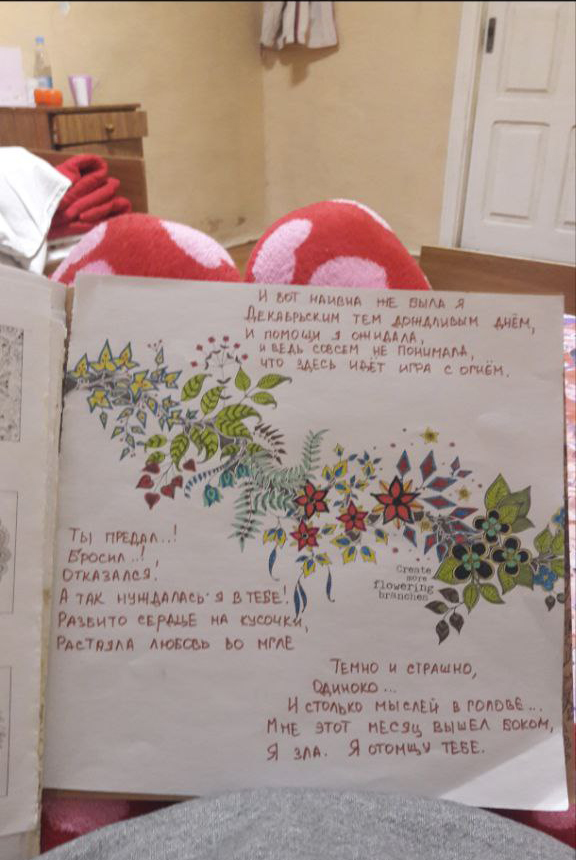 И ВОТ НАИВНА ЖЕ БЫЛА Я
ДЕКАБРЬСКИМ ТЕМ ДОЖДЛИВЫМ ДНЁМ,
И ПОМОЩИ Я ОЖИДАЛА,
И ВЕДЬ СОВСЕМ НЕ ПОНИМАЛА,
ЧТО ЗДЕСЬ ИДЁТ ИГРА С ОГНЁМ.
ТЫ ПРЕДАЛ..!
БРОСИЛ..!,
ОТКАЗАЛСЯ.
А ТАК НУЖДАЛАСЬ Я В ТЕБЕ!
РАЗБИТО СЕРДЦЕ НА КУСОЧКИ,
РАСТАЯЛА ЛЮБОВЬ ВО МГЛЕ
Create
more
flowering
branches
ТЕМНО И СТРАШНО,
ОДИНОКО...
И СТОЛЬКО МЫСЛЕЙ В ГОЛОВЕ...
МНЕ ЭТОТ МЕСЯЦ ВЫШЕЛ БОКОМ,
Я ЗЛА. Я ОТОМЩУ ТЕБЕ.